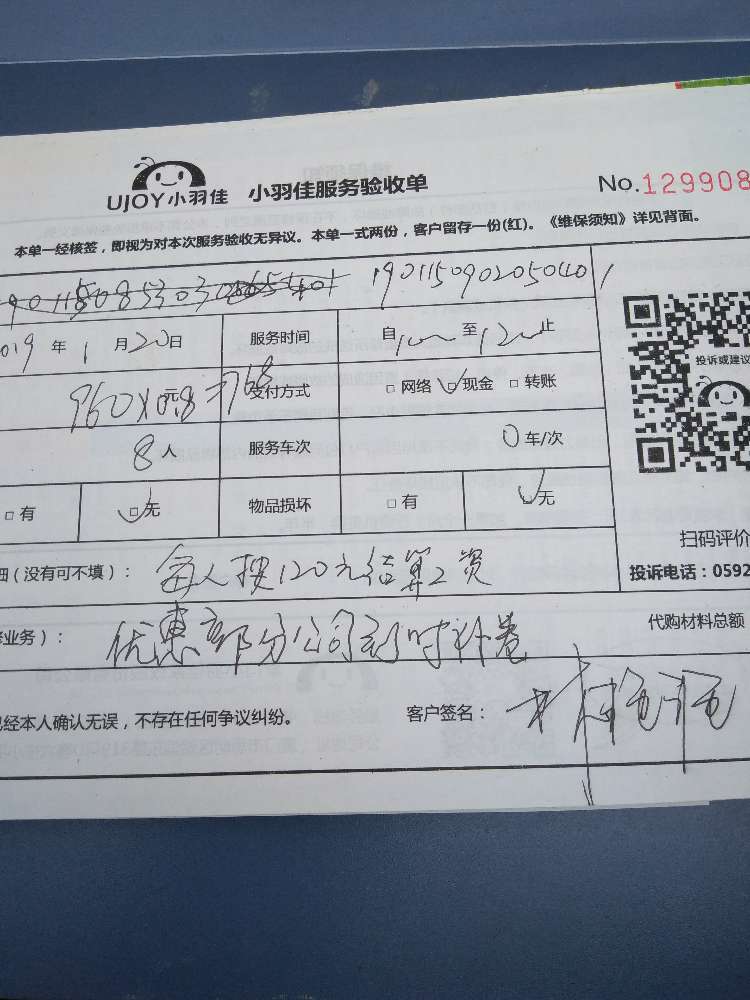 UJOY小羽佳 小羽佳服务验收单 No.129908
本单一经核签，即视为对本次服务验收无异议。本单一式两份，客户留存一份(红)。《维保须知》详见背面。
1901150902050401
2019 年 1 月20日 服务时间 自 至 止
960×0.8=768 支付方式 □ 网络 □ 现金 □ 转账
投诉或建议
8人 服务车次 0 车/次
□ 有 □ 无 物品损坏 □ 有 无
扫码评价
（没有可不填）： 每人按120元结算工资 投诉电话：0592
业务）： 优惠部分公司到时补卷 代购材料总额
已经本人确认无误，不存在任何争议纠纷。 客户签名： 林